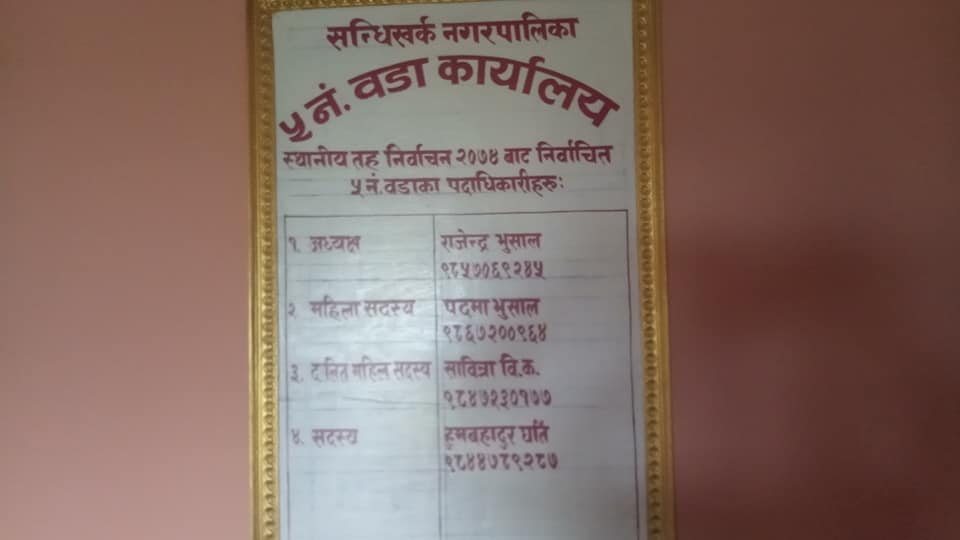 सन्धिखर्क नगरपालिका
५ नं. वडा कार्यालय
स्थानीय तह निर्वाचन २०७४ बाट निर्वाचित
५ नं. वडाका पदाधिकारीहरु:
१. अध्यक्ष राजेन्द्र भुसाल
९८५७०६९२४५
२. महिला सदस्य पदमा भुसाल
९८६७२००९६४
३. दलित महिल सदस्य सावित्रा वि.क.
९८४७२३०१७७
४. सदस्य हुमबहादुर घर्ति
९८४४७८९२८७